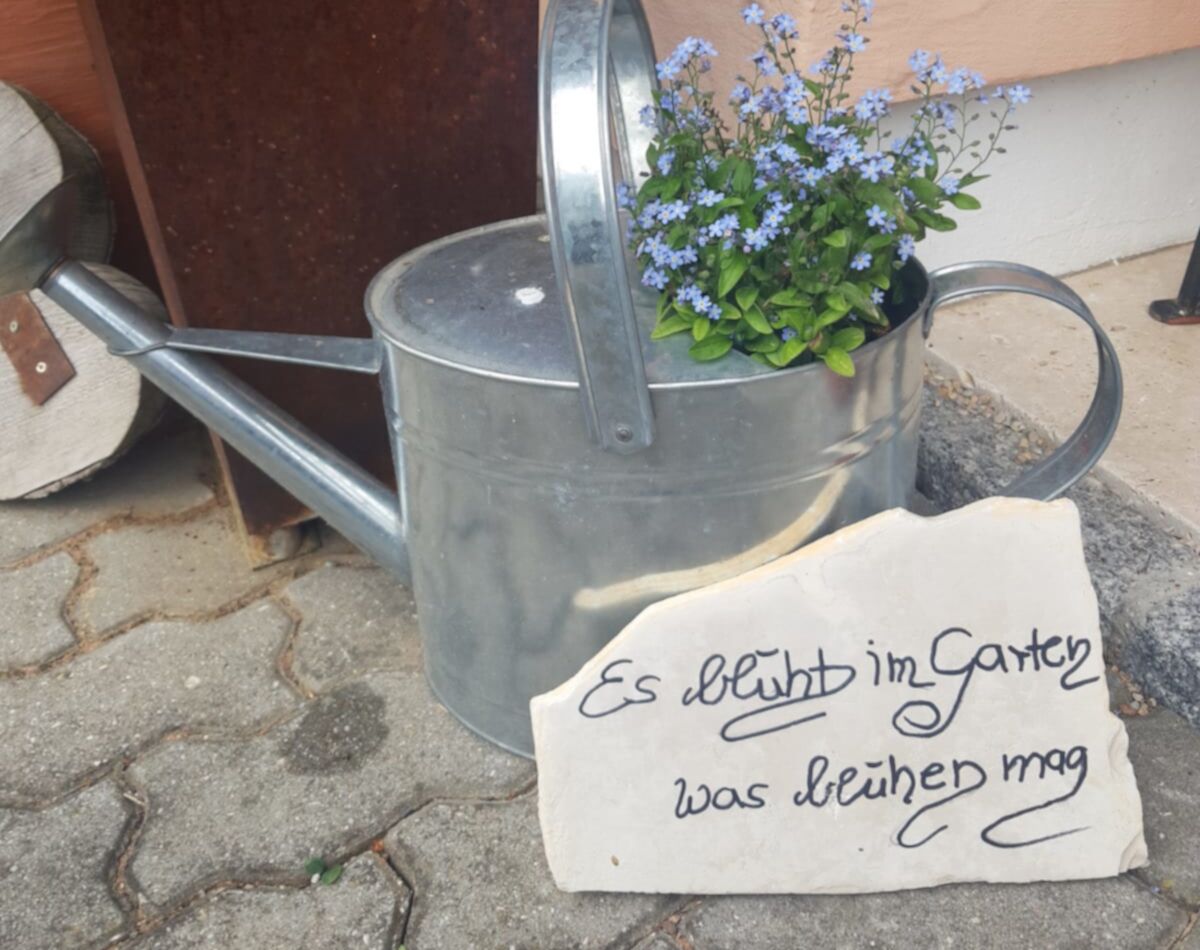 Es blüht im Garten
was blühen mag